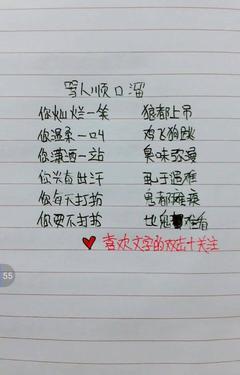 骂人顺口溜
你灿烂一笑 狼都上吊
你温柔一叫 鸡飞狗跳
你潇洒一站 臭味弥漫
你头直出汗 虱子遇难
你每天打扮 鬼都瘫痪
你要不打扮 比鬼难看
喜欢文字的双击+关注
55